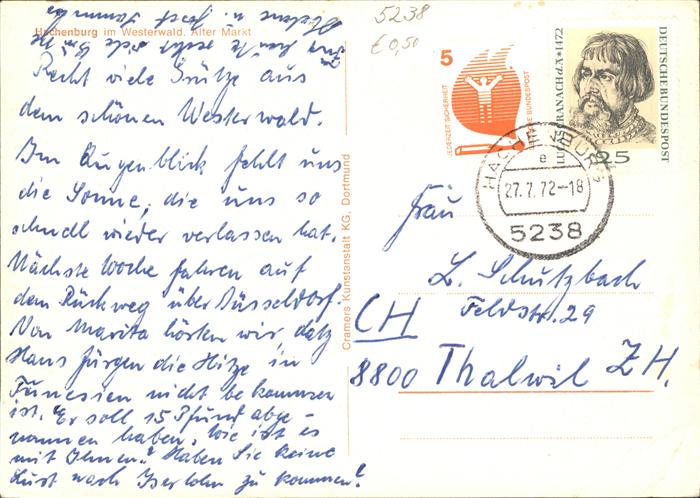 Hachenburg im Westerwald. Alter Markt
Recht viele Grüße aus
dem schönen Westerwald.
Im Augenblick fehlt uns
die Sonne, die uns so
schnell wieder verlassen hat.
Nächste Woche fahren auf
dem Rückweg über Düsseldorf.
Von Marita hörten wir, daß
Hans Jürgen die Hitze in
Tunesien nicht bekommen
ist. Er soll 15 Pfund abge-
nommen haben. Wie ist es
mit Ihnen? Haben Sie keine
Lust nach Iserlohn zu kommen?
Familie
Cramers Kunstanstalt KG, Dortmund
5238
€ 0,50
5
JEDERZEIT SICHERHEIT
DEUTSCHE BUNDESPOST
LUCAS CRANACH d.Ä. 1472
DEUTSCHE BUNDESPOST
25
HACHENBURG
e
27.7.72-18
5238
Frau
L. Schutzbach
Feldstr. 29
CH
8800 Thalwil ZH.